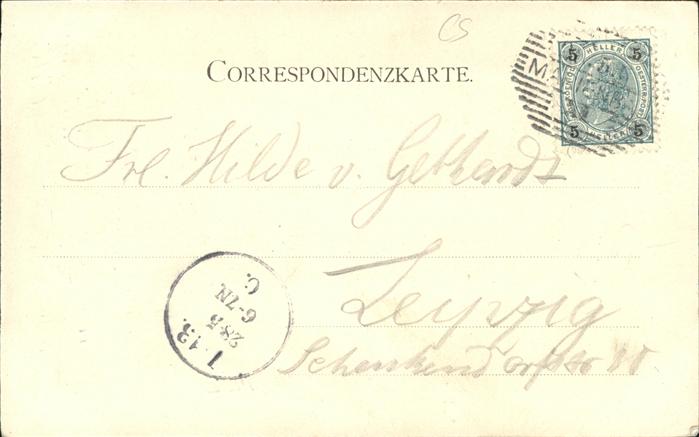 CS
5 HELLER 5
5 HELLER 5
MA
CORRESPONDENZKARTE.
Frl. Hilde v. Gebhardt
Leipzig
1. 13.
28 5
6-7N.
C.